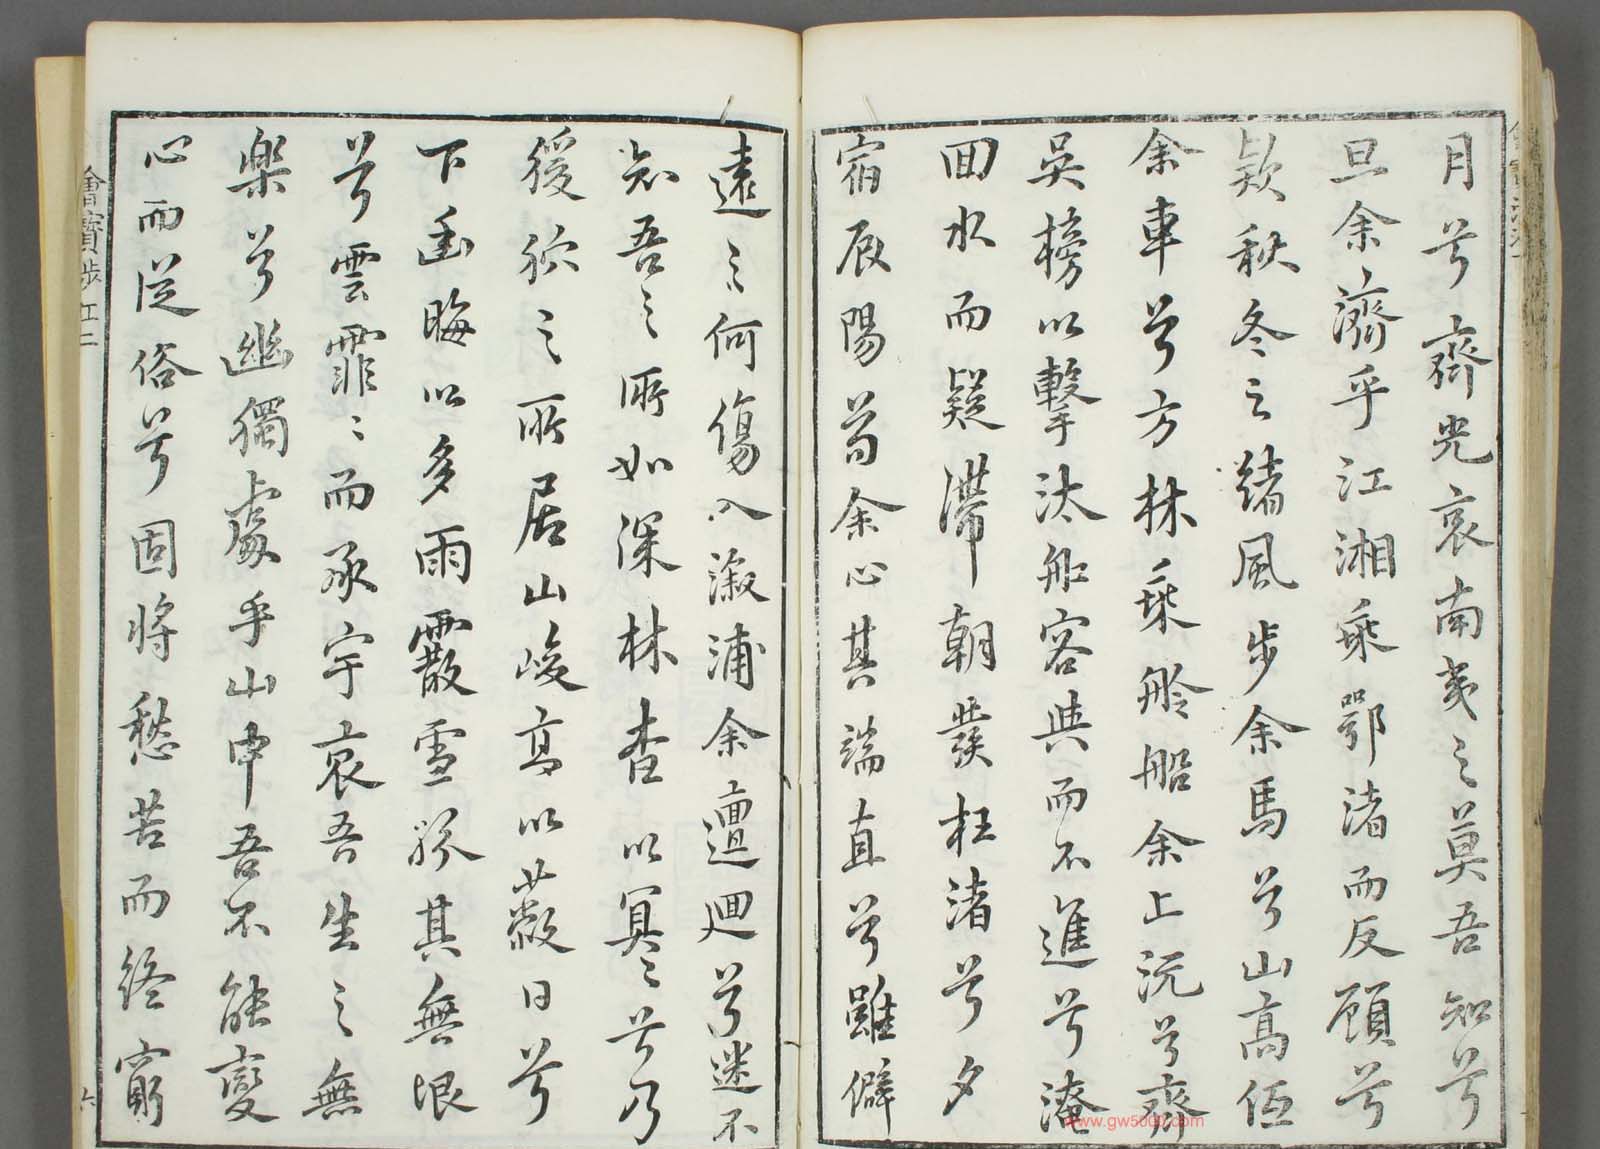 月兮齊光哀南夷之莫吾知兮
旦余濟乎江湘乘鄂渚而反顧兮
欵秋冬之緒風步余馬兮山高低
余車兮方林乘舲船余上沅兮齊
吳榜以擊汰船容與而不進兮淹
回水而疑滯朝發枉渚兮夕
宿辰陽苟余心其端直兮雖僻
遠之何傷入溆浦余邅迴兮迷不
知吾之所如深林杳以冥〻兮乃
猨狖之所居山峻高以蔽日兮
下幽晦以多雨霰雪紛其無垠
兮雲霏〻而承宇哀吾生之無
樂兮幽獨處乎山中吾不能變
心而從俗兮固將愁苦而終窮
會寶 涉江二
六
www.gw5000.com